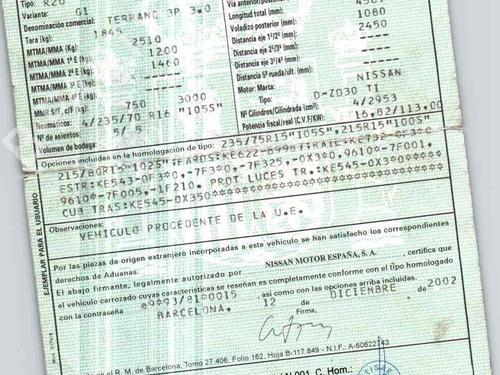 Tipo: R20
Variante: G1
Denominación comercial: TERRANO 3P 3.0
Tara (kg): 1845
MTMA/MMA (Kg): 2510
MTMA/MMA 1ª E (kg): 1200
MTMA/MMA 2ª E (kg): 1460
MTMA/MMA 3ª E (kg): -----
MTMA/MMA 4ª E (kg): -----
MMR S/F, c/F (kg): 750 3000
Neumáticos: 4/235/70 R16 "105S"
Nº de asientos: 5/ 5
Volumen de bodega:
Vía anterior/posterior (mm):
Longitud total (mm):
Voladizo posterior (mm): 1080
Distancia eje 1º/2º (mm): 2450
Distancia eje 2º/3º (mm): -----
Distancia eje 3º/4º (mm): -----
Distancia 5ª rueda/ult. (mm): -----
Motor: Marca: NISSAN
Tipo: D-ZD30 TI
Nº Cilindros/Cilindrada (cm³): 4/2953
Potencia fiscal/real (C.V.F/KW): 16,82/113,00
Opciones incluidas en la homologación de tipo: 235/75R15"105S",215R15"100S"
215/80R15"102S";FAROS:KE622-89987;RAIL:KE732-0F3*0
ESTR:KE543-0F3*0,-7F3*0,-7F325,-0X3*0,9610*-7F001,
9610*-7F005,-1F210. PROT LUCES TR.:KE545-0X3*0
CUB TRAS:KE545-0X350*****************
Observaciones:
VEHICULO PROCEDENTE DE LA U.E.
EJEMPLAR PARA EL USUARIO
Por las piezas de origen extranjero incorporadas a este vehículo se han satisfecho los correspondientes
derechos de Aduanas.
El abajo firmante, legalmente autorizado por NISSAN MOTOR ESPAÑA, S. A. certifica que
el vehículo carrozado cuyas características se reseñan es completamente conforme con el tipo homologado
con la contraseña e9*93/81*0015, así como con las opciones arriba incluidas.
BARCELONA, 12 de DICIEMBRE de 2002
Firma,
el R. M. de Barcelona, Tomo 27.406, Folio 162, Hoja B-117.849 - N.I.F.: A-60622143
C. Hom.: